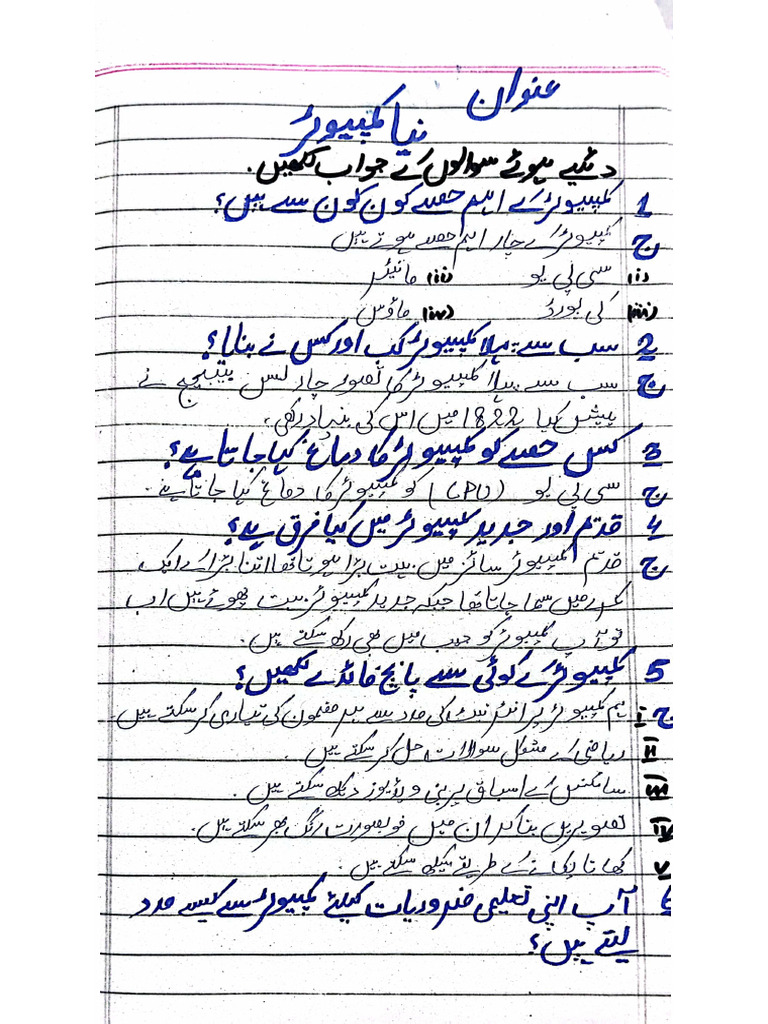 عنوان
نیا کمپیوٹر
دئیے ہوئے سوالوں کے جواب لکھیں.
1 کمپیوٹر کے اہم حصے کون کون سے ہیں؟
ج کمپیوٹر کے چار اہم حصے ہوتے ہیں
(i) سی پی یو (ii) مانیٹر
(iii) کی بورڈ (iv) ماؤس
2 سب سے پہلا کمپیوٹر کب اور کس نے بنایا؟
ج سب سے پہلا کمپیوٹر کا تصور چارلس بیبیج نے
پیش کیا 1822 میں اس کی بنیاد رکھی.
3 کس حصے کو کمپیوٹر کا دماغ کہا جاتا ہے؟
ج سی پی یو (CPU) کو کمپیوٹر کا دماغ کہا جاتا ہے.
4 قدیم اور جدید کمپیوٹر میں کیا فرق ہے؟
ج قدیم کمپیوٹر سائز میں بہت بڑا ہوتا تھا اتنا بڑا کے ایک
کمرے میں سما جاتا تھا جبکہ جدید کمپیوٹر بہت چھوٹے ہیں اب
تو آپ کمپیوٹر کو جیب میں بھی رکھ سکتے ہیں.
5 کمپیوٹر کے کوئی سے پانچ فائدے لکھیں؟
ج i ہم کمپیوٹر پر انٹرنیٹ کی مدد سے ہر مضمون کی تیاری کر سکتے ہیں
ii ریاضی کے مشکل سوالات حل کر سکتے ہیں.
iii سائنس کے اسباق پر بنی ویڈیوز دیکھ سکتے ہیں.
iv تصویریں بنا کر ان میں خوبصورت رنگ بھر سکتے ہیں.
v کھانا پکانے کے طریقے سیکھ سکتے ہیں.
6 آپ اپنی تعلیمی ضروریات کیلئے کمپیوٹر سے کیسے مدد
لیتے ہیں؟